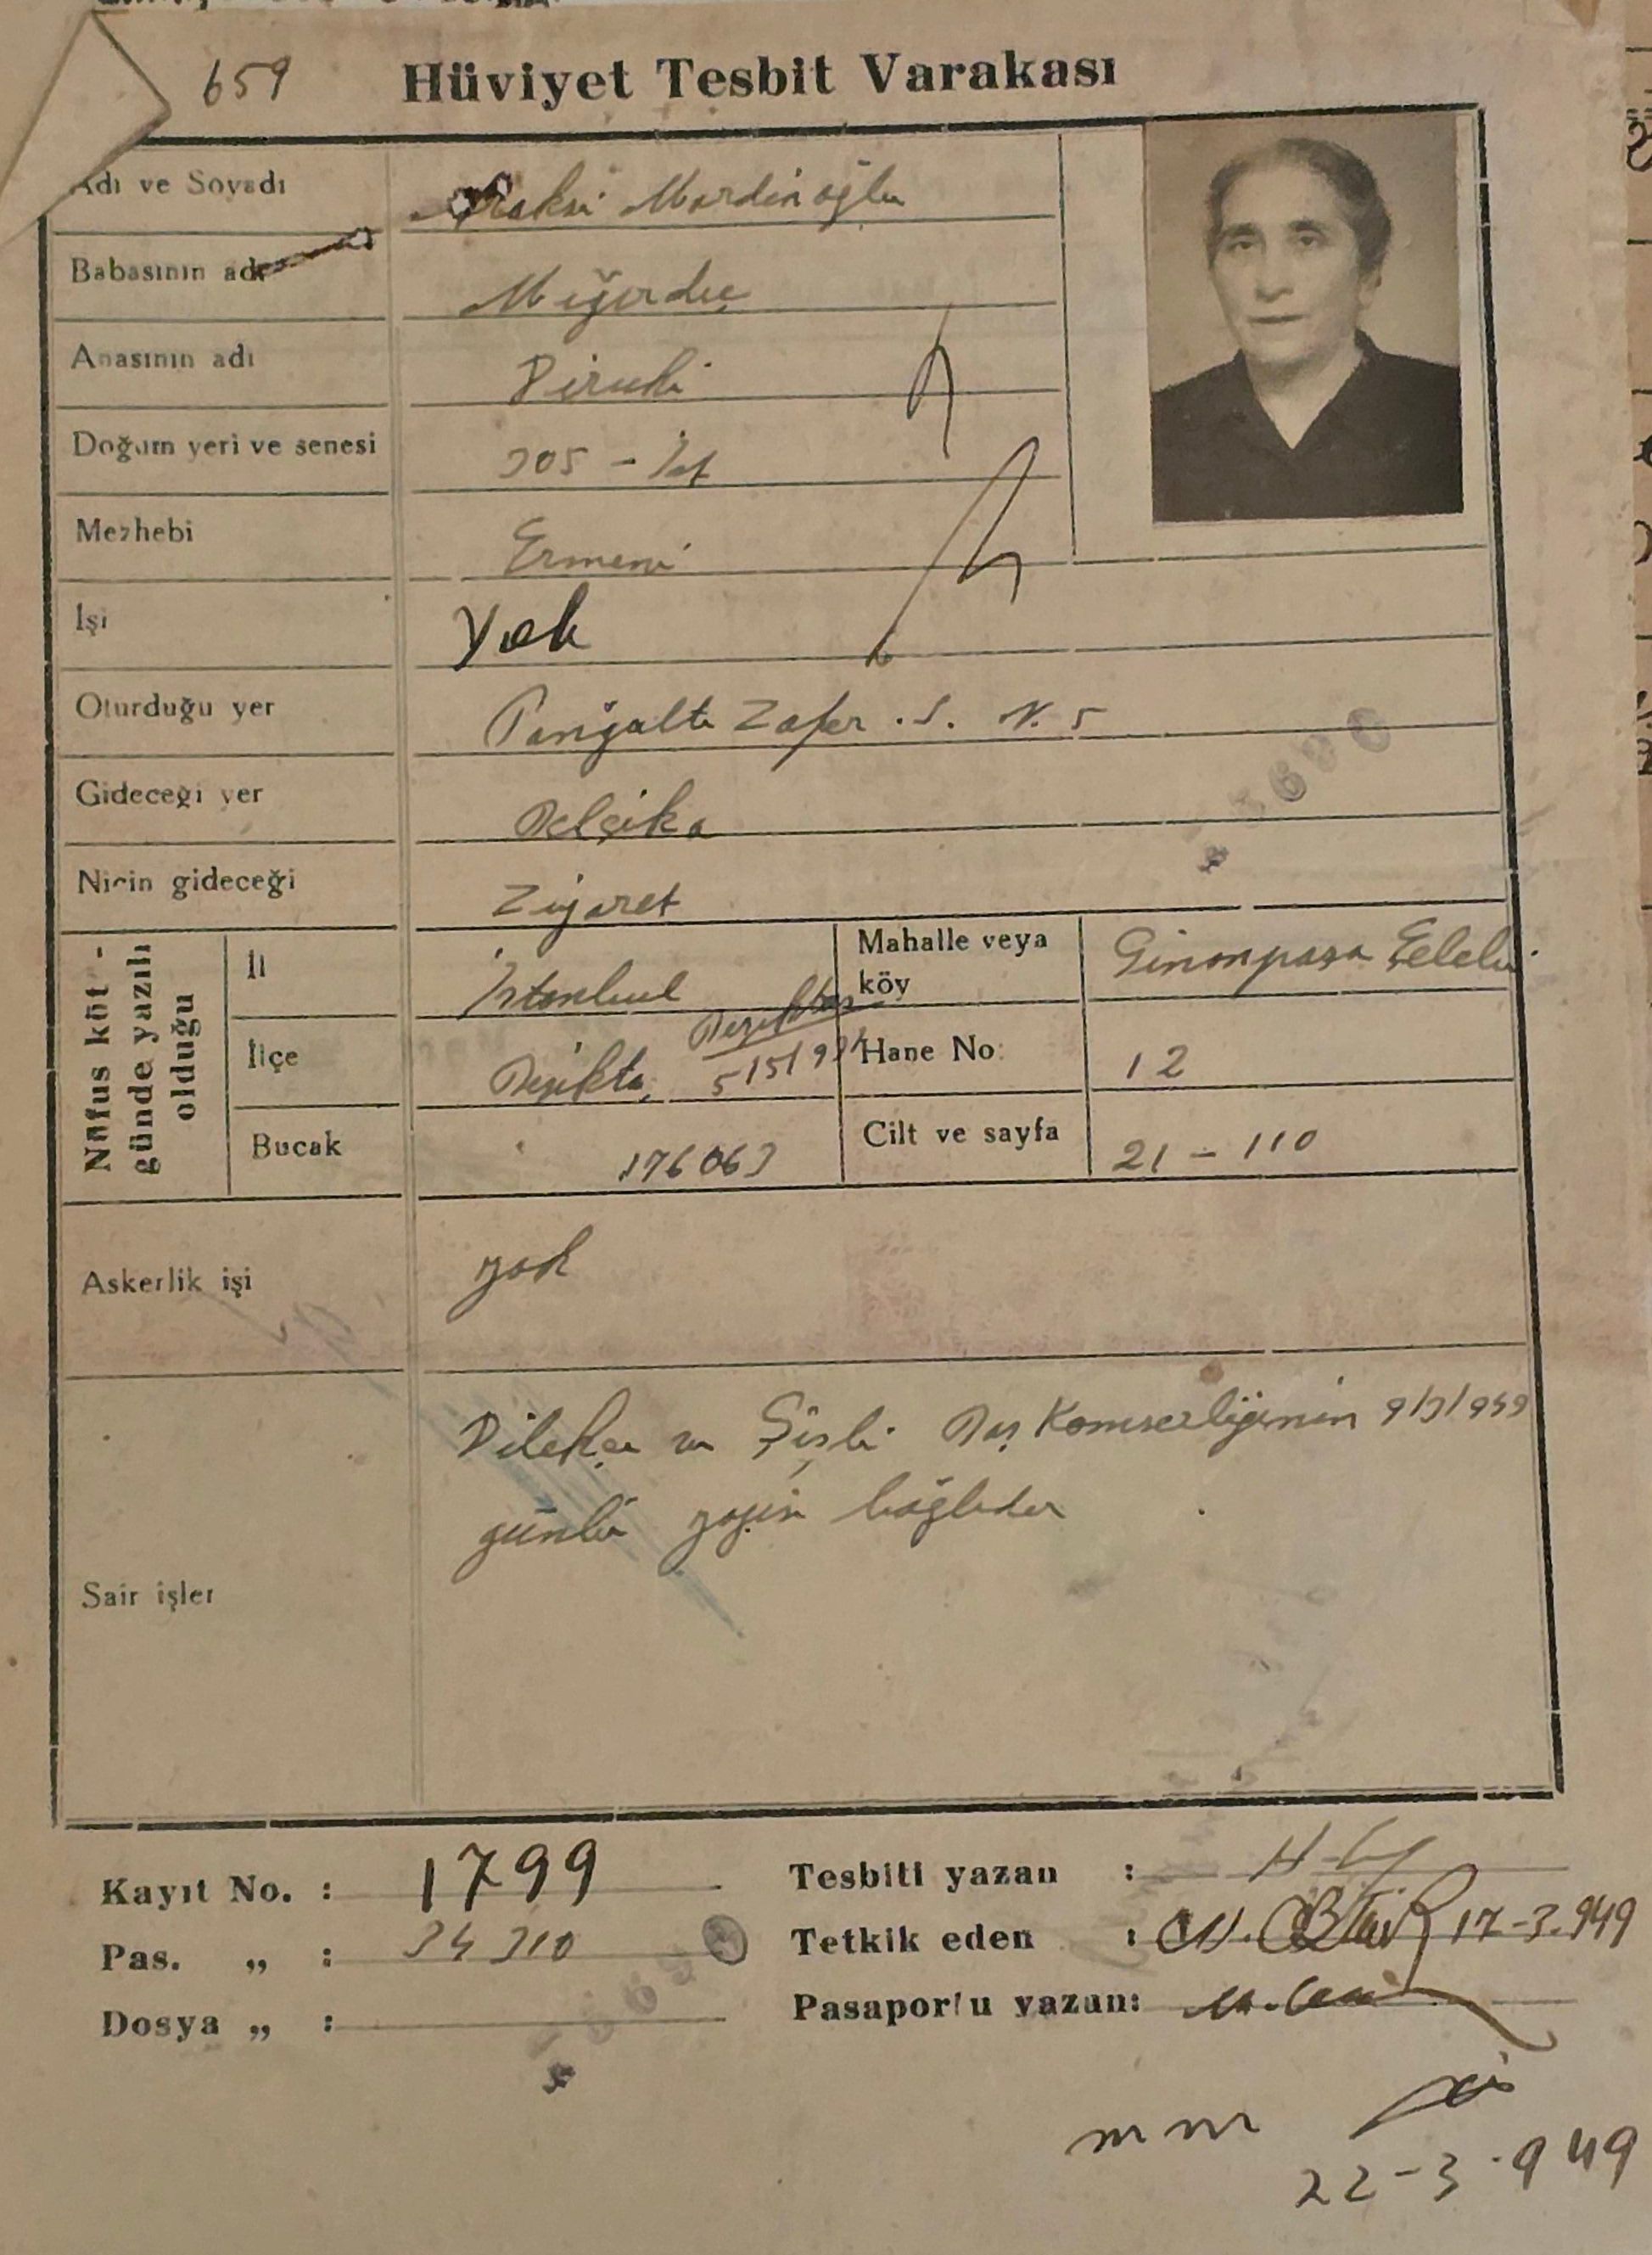 659 Hüviyet Tesbit Varakası
Adı ve Soyadı Mardinoğlu
Babasının adı Mığırdıç
Anasının adı Diruhi
Doğum yeri ve senesi 305 - İst
Mezhebi Ermeni
İşi Yok
Oturduğu yer Panğaltı Zafer . S. N. 5
Gideceği yer Belçika
Niçin gideceği Ziyaret
Nüfus kütüğünde yazılı olduğu
İl İstanbul
Mahalle veya köy Sinanpaşa
İlçe Beşiktaş
Beşiktaş
Hane No: 12
Bucak 176063
Cilt ve sayfa 21 - 110
Askerlik işi yok
Sair işler
Dilekçe ve Şişli Baş Komserliğinin 9/3/949
günlü yazısı bağlıdır
Kayıt No. : 1799
Pas. „ : 34310
Dosya „ :
Tesbiti yazan :
Tetkik eden : 17-3.949
Pasaportu yazan:
22-3-949